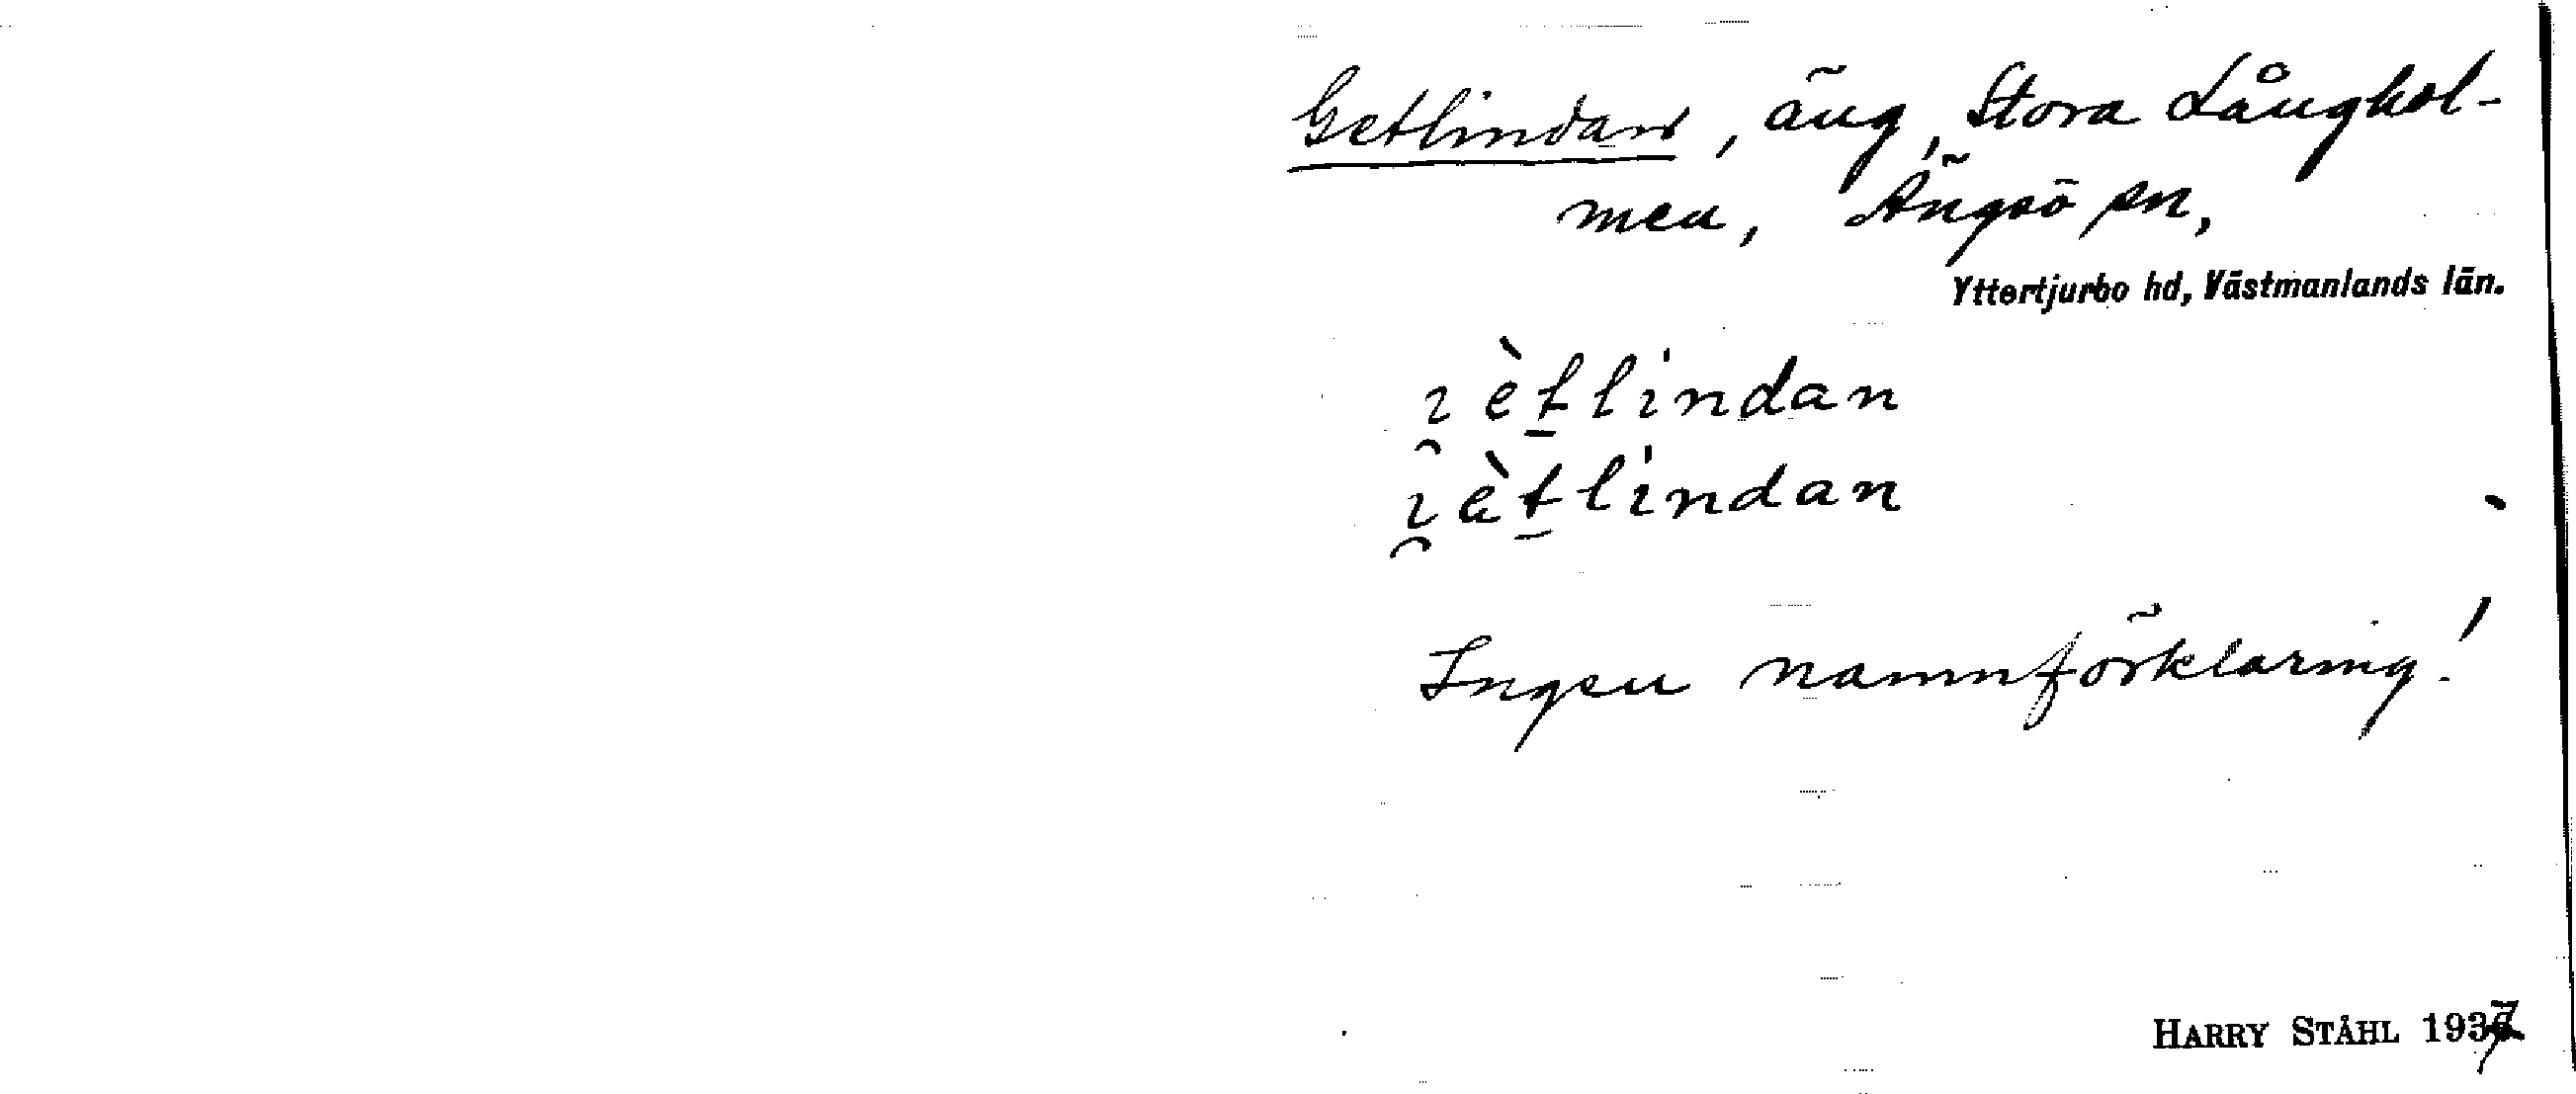 Getlindan, äng, Stora Långhol-
men, Ängsö sn,
Yttertjurbo hd, Västmanlands län.
ı̯ètlìndan
ı̯ètlìndan
Ingen namnförklaring!
HARRY STÅHL 1937